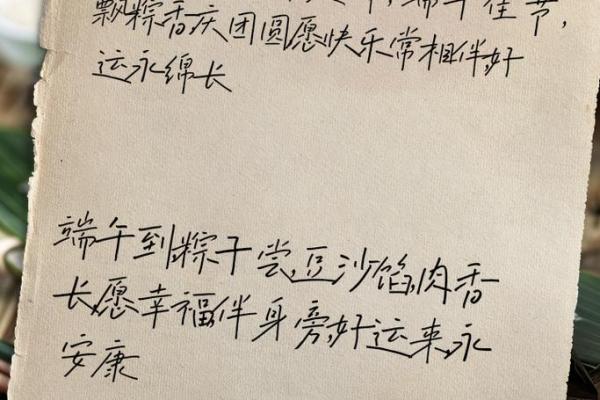 端午佳节,
飘粽香庆团圆愿快乐常相伴,好
运永绵长
端午到,粽子尝,豆沙馅,肉香
长,愿幸福伴身旁,好运来,永
安康